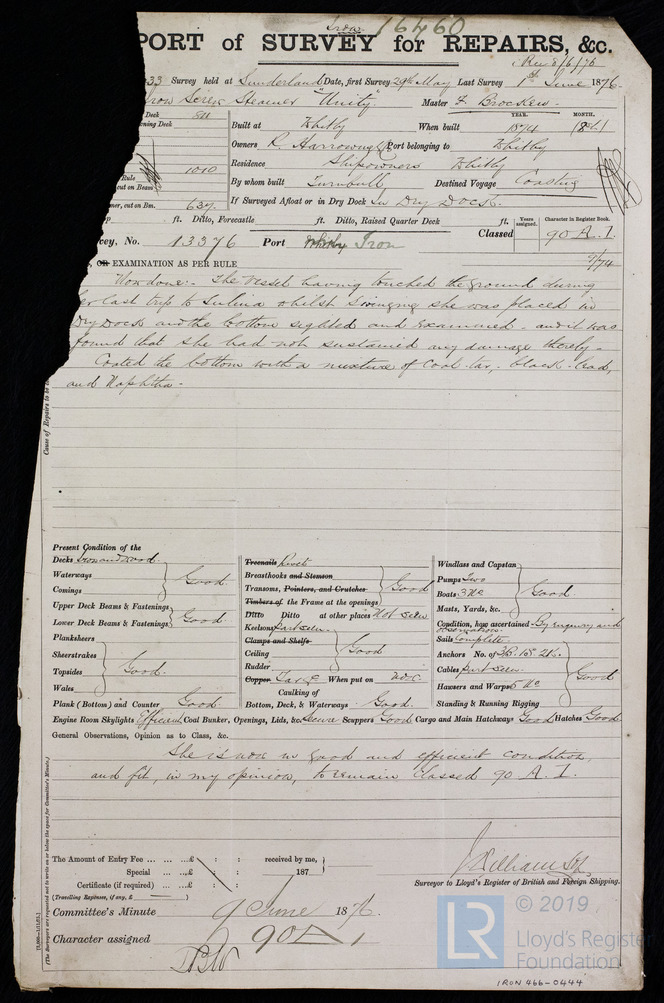 Iron 16460
PORT of SURVEY for REPAIRS, &c.
Rec 8/6/76
33 Survey held at Sunderland Date, first Survey 29th May Last Survey 1st June 1876
Iron Screw Steamer "Unity" Master F. Brockew
Deck 511
ning Deck
Built at Whitby When built YEAR. 1874 MONTH. (8th)
Owners R. Harrowing Port belonging to Whitby
1010 Residence Shipowners Whitby
Rule
out on Beam
By whom built Turnbull Destined Voyage Coasting
ner, cut on Bm. 637 If Surveyed Afloat or in Dry Dock In Dry Dock.
ft. Ditto, Forecastle ft. Ditto, Raised Quarter Deck ft.
vey, No. 13376 Port Whitby Iron Classed Years assigned. Character in Register Book. 90 A.1.
9/74
, OR EXAMINATION AS PER RULE
Now done:- The Vessel having touched the ground during
her last trip to Sulina whilst swinging she was placed in
Dry Dock and the bottom sighted and examined - and it was
found that she had not sustained any damage thereby -
Coated the bottom with a mixture of Coal-tar, black-lead,
and Naphtha -
Cause of Repairs to be
Present Condition of the
Decks Iron and wood
Waterways
Comings
Good
Upper Deck Beams & Fastenings
Lower Deck Beams & Fastenings
Good
Planksheers
Sheerstrakes
Topsides
Wales
Good.
Plank (Bottom) and Counter Good.
Treenails Rivets
Breasthooks and Stemson
Transoms, Pointers, and Crutches
Timbers of the Frame at the openings
Good
Ditto Ditto at other places Not seen
Keelsons Part seen
Clamps and Shelfs
Ceiling
Rudder
Good
Copper Tar &c When put on Nov.
Caulking of
Bottom, Deck, & Waterways Good.
Windlass and Capstan
Pumps Two
Boats 3 No
Masts, Yards, &c.
Good.
Condition, how ascertained By enquiry and
observation.
Sails Complete.
Anchors No. of 3B. 1S. 2K.
Cables part seen.
Hawsers and Warps 5 No
Standing & Running Rigging
Good
Engine Room Skylights Efficient Coal Bunker, Openings, Lids, &c. Secure Scuppers Good Cargo and Main Hatchways Good Hatches Good
General Observations, Opinion as to Class, &c.
She is now in good and efficient condition,
and fit, in my opinion, to remain classed 90 A.1.
The Amount of Entry Fee ... ... £ : : received by me,
Special ... ... £ : : 187
Certificate (if required) ... £ : :
(Travelling Expenses, if any, £ )
Surveyor to Lloyd's Register of British and Foreign Shipping.
Committee's Minute 9 June 1876.
Character assigned 90 A 1
(The Surveyors are requested not to write on or below the space for Committee's Minute.)
LR © 2019
Lloyd's Register
Foundation
IRON 466-0444